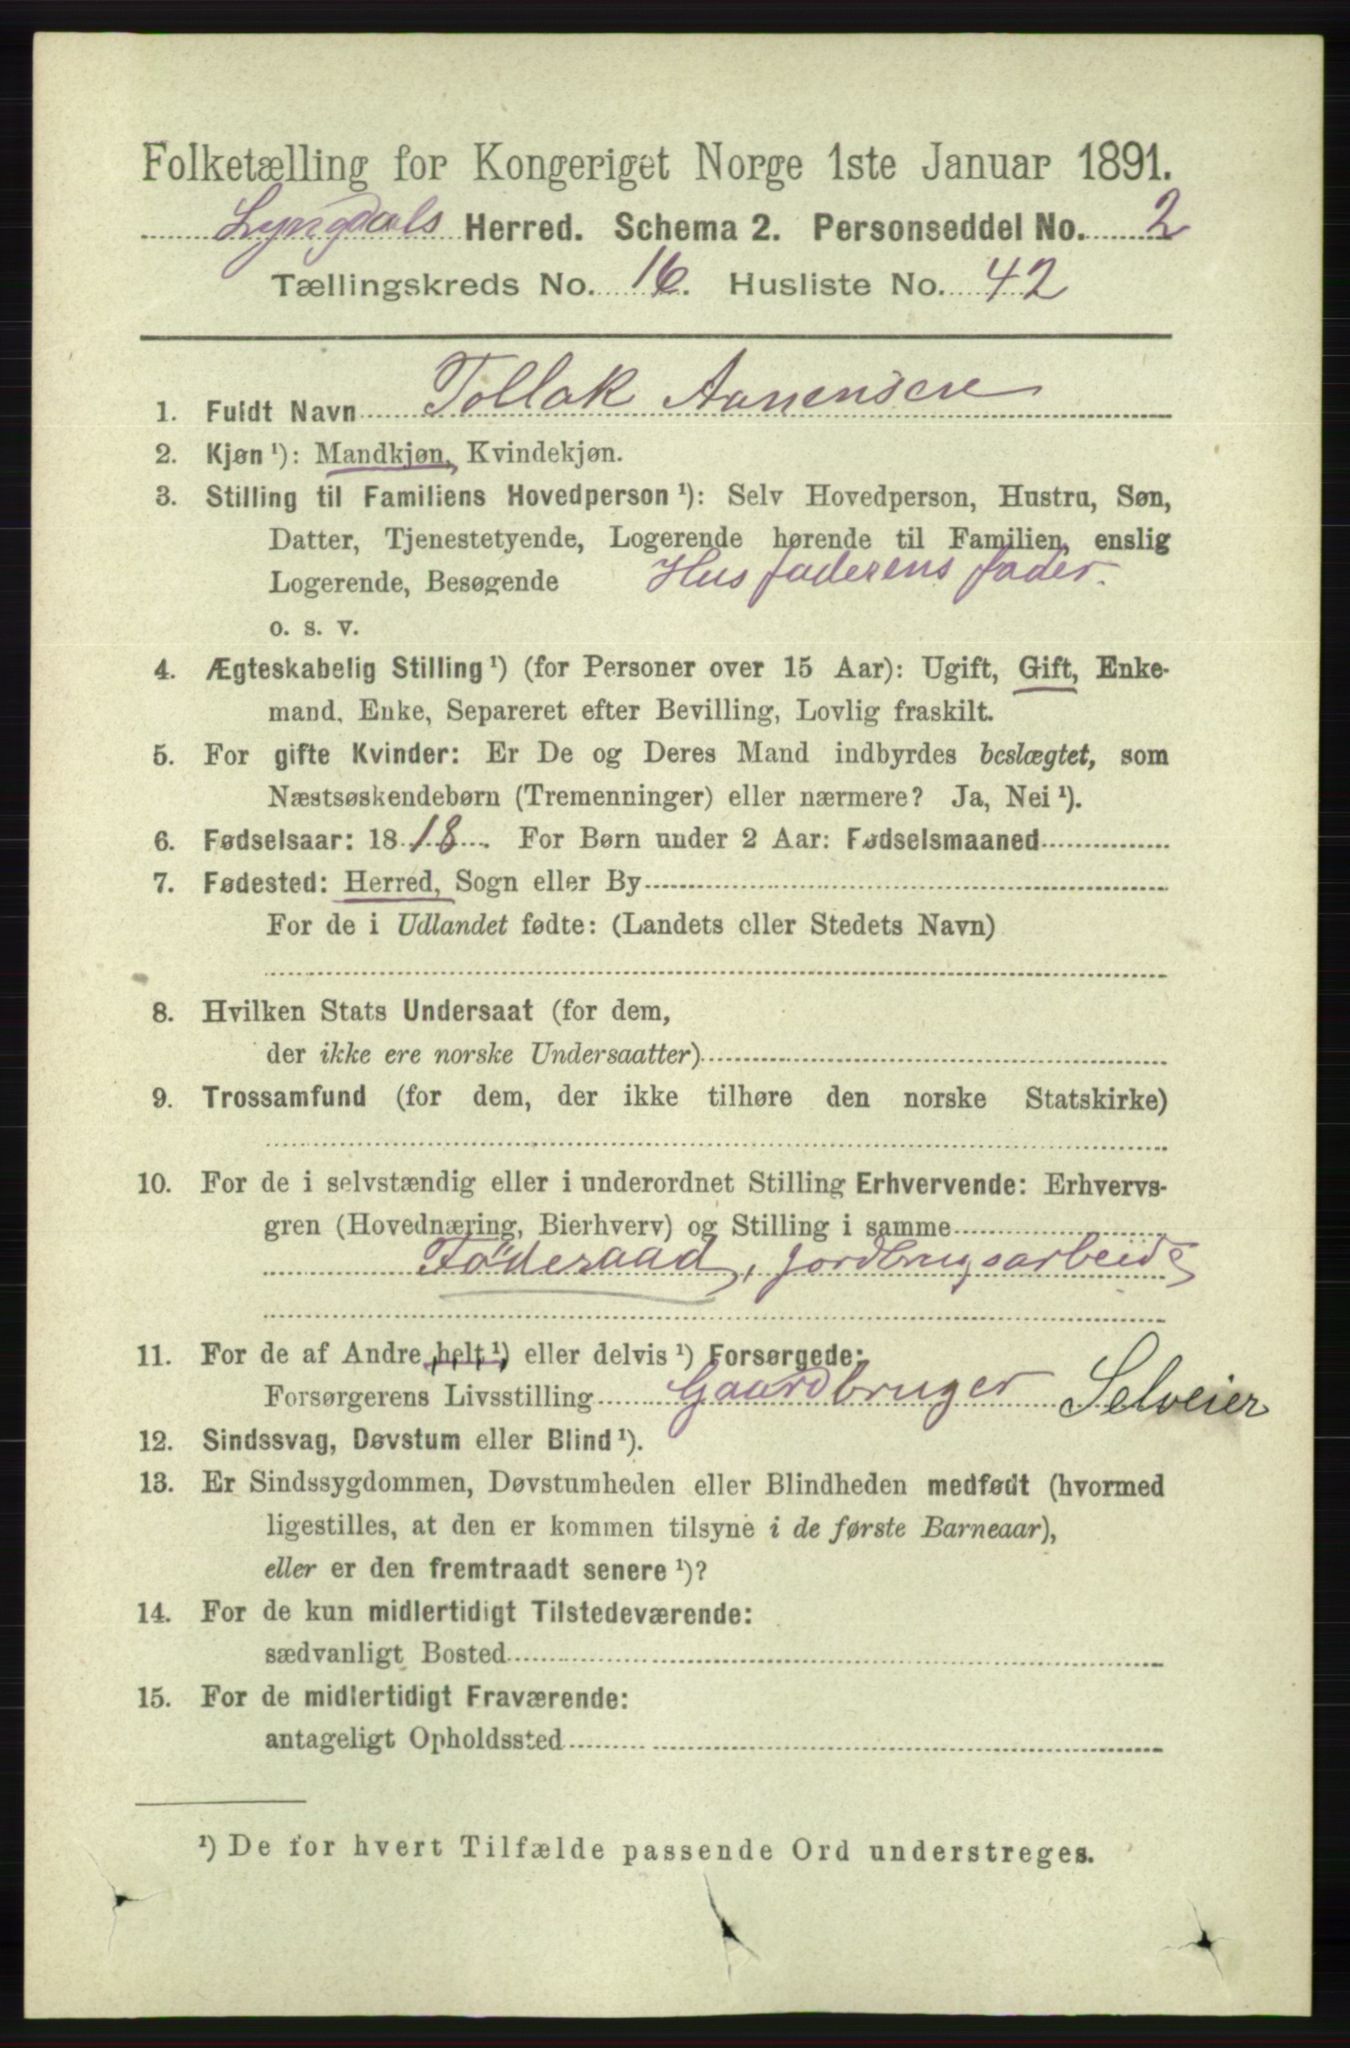 Folketælling for Kongeriget Norge 1ste Januar 1891.
Lyngdals Herred. Schema 2. Personseddel No. 2
Tællingskreds No. 16. Husliste No. 42
1. Fuldt Navn Tollak Aanensen
2. Kjøn ¹): Mandkjøn, Kvindekjøn.
3. Stilling til Familiens Hovedperson ¹): Selv Hovedperson, Hustru, Søn,
Datter, Tjenestetyende, Logerende hørende til Familien, enslig
Logerende, Besøgende Husfaderens fader.
o. s. v.
4. Ægteskabelig Stilling ¹) (for Personer over 15 Aar): Ugift, Gift, Enke-
mand, Enke, Separeret efter Bevilling, Lovlig fraskilt.
5. For gifte Kvinder: Er De og Deres Mand indbyrdes beslægtet, som
Næstsøskendebørn (Tremenninger) eller nærmere? Ja, Nei ¹).
6. Fødselsaar: 1818. For Børn under 2 Aar: Fødselsmaaned
7. Fødested: Herred, Sogn eller By
For de i Udlandet fødte: (Landets eller Stedets Navn)
8. Hvilken Stats Undersaat (for dem,
der ikke ere norske Undersaatter)
9. Trossamfund (for dem, der ikke tilhøre den norske Statskirke)
10. For de i selvstændig eller i underordnet Stilling Erhvervende: Erhvervs-
gren (Hovednæring, Bierhverv) og Stilling i samme
Föderaad, jordbrugsarbeide
11. For de af Andre, helt ¹) eller delvis ¹) Forsørgede:
Forsørgerens Livsstilling Gaardbruger Selveier
12. Sindssvag, Døvstum eller Blind ¹).
13. Er Sindssygdommen, Døvstumheden eller Blindheden medfødt (hvormed
ligestilles, at den er kommen tilsyne i de første Barneaar),
eller er den fremtraadt senere ¹)?
14. For de kun midlertidigt Tilstedeværende:
sædvanligt Bosted
15. For de midlertidigt Fraværende:
antageligt Opholdssted
¹) De for hvert Tilfælde passende Ord understreges.